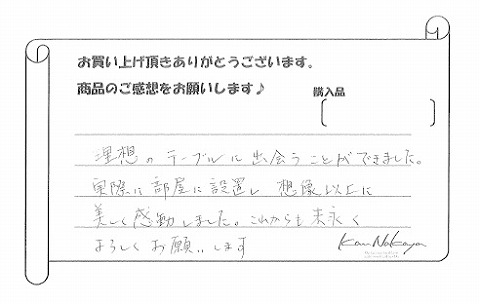 お買い上げ頂きありがとうございます。
商品のご感想をお願いします♪
購入品
理想のテーブルに出会うことができました。
実際に部屋に設置し 想像以上に
美しく感動しました。これからも末永く
よろしくお願いします
Kan Nakaya